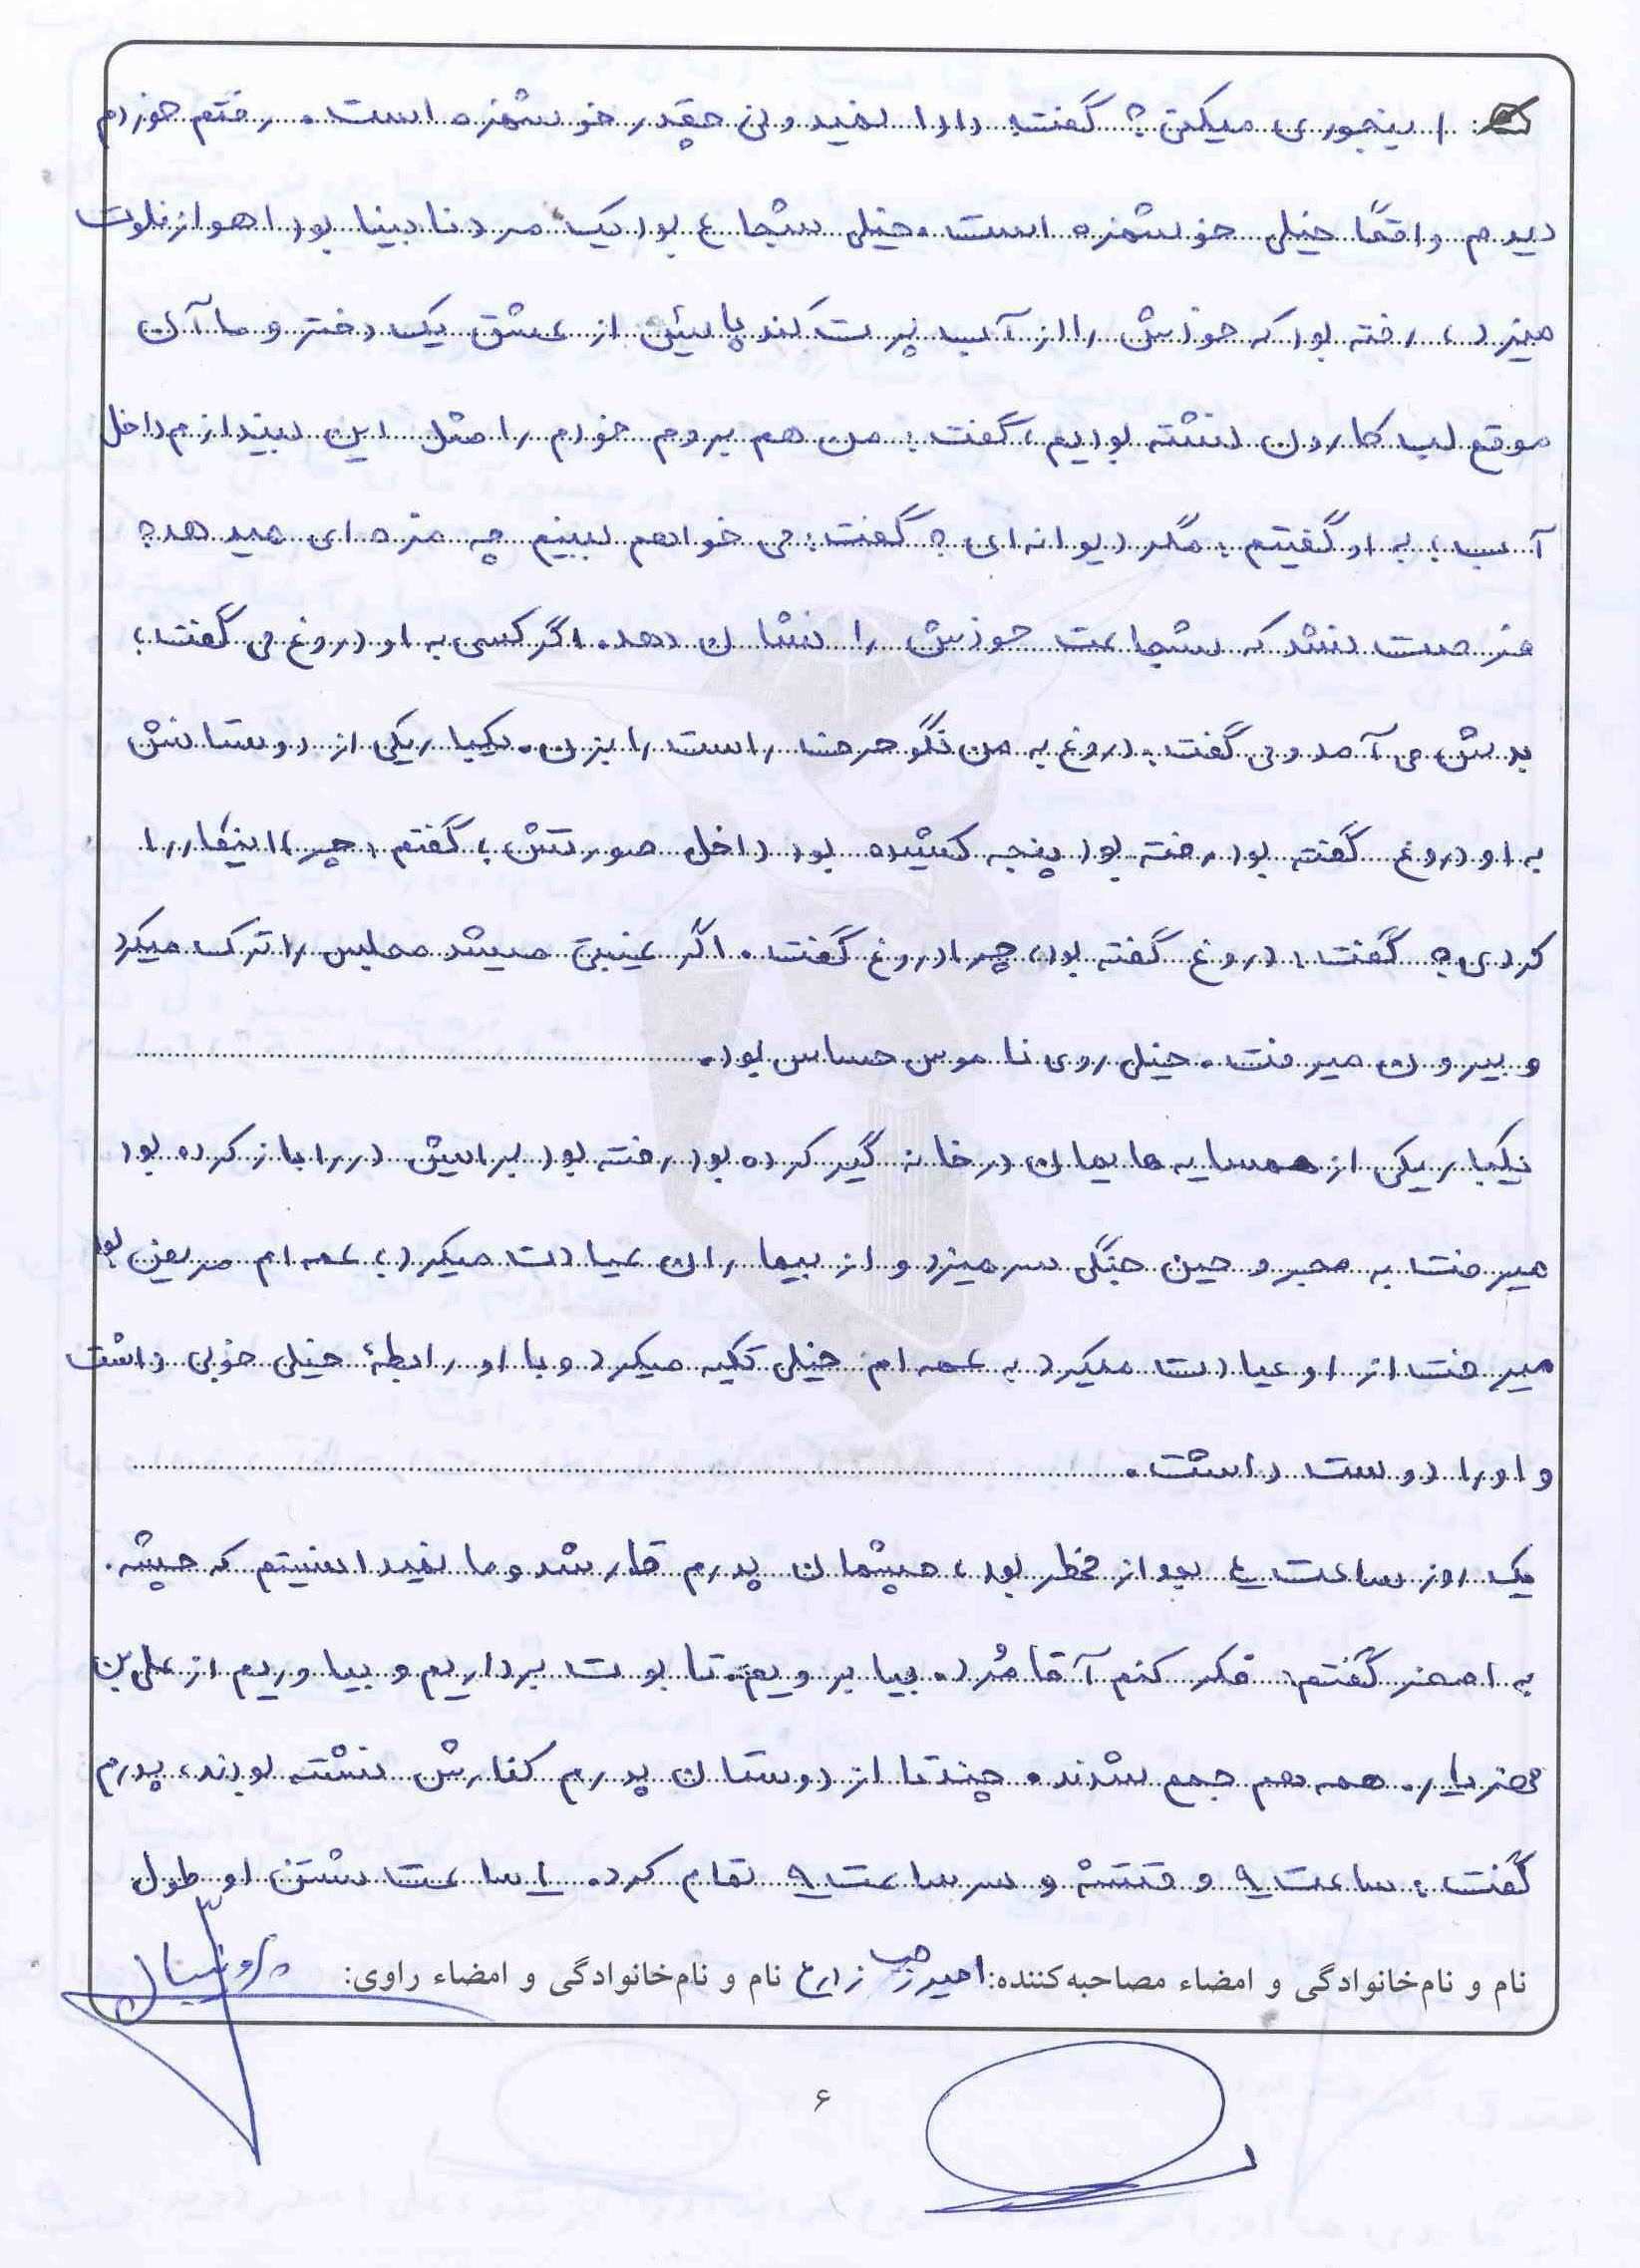 اینجوری میکنی؟ گفت: دادا نمیدونی چقدر خوشمزه است. رفتم خوردم
دیدم واقعاً خیلی خوشمزه است. خیلی شجاع بود یک مرد نابینا بود اهواز فلوت
میزد، رفته بود که خودش را از آب پرت کند پایین از عشق یک دختر و ما آن
موقع لب کارون نشسته بودیم، گفت: من هم بروم خودم را مثل این بیندازم داخل
آب؛ به او گفتیم: مگر دیوانه‌ای؟ گفت: می خواهم ببینم چه مزه ای میدهد؟
فرصت نشد که شجاعت خودش را نشان دهد. اگر کسی به او دروغ می گفت؛
بدش می آمد و می گفت: دروغ به من نگو حرف راست را بزن. یکبار یکی از دوستانش
به او دروغ گفته بود رفته بود پنجه کشیده بود داخل صورتش؛ گفتم: چرا اینکار را
کردی؟ گفت: دروغ گفته بود، چرا دروغ گفت. اگر غیبتی میشد مجلس را ترک میکرد
و بیرون میرفت. خیلی روی ناموس حساس بود.
یکبار یکی از همسایه هایمان در خانه گیر کرده بود رفته بود برایش در را باز کرده بود
میرفت به مجروحین جنگی سر میزد و از بیماران عیادت میکرد؛ عمه ام مریض بود
میرفت از او عیادت میکرد به عمه ام خیلی تکیه میکرد و با او رابطهٔ خیلی خوبی داشت
و او را دوست داشت.
یک روز ساعت ۴ بعد از ظهر بود، چشمان پدرم تار شد و ما نمیدانستیم که چیشه.
به اصغر گفتم: فکر کنم آقا مُرد. بیا برویم تابوت برداریم و بیاوریم از علی بن
مهزیار. همه هم جمع شدند. چندتا از دوستان پدرم کنارش نشسته بودند، پدرم
گفت: ساعت ۹ وقتشه و سر ساعت ۹ تمام کرد. ۱ ساعت شستن او طول
نام و نام‌خانوادگی و امضاء مصاحبه‌کننده: امیررجب زارع نام و نام‌خانوادگی و امضاء راوی:
۶